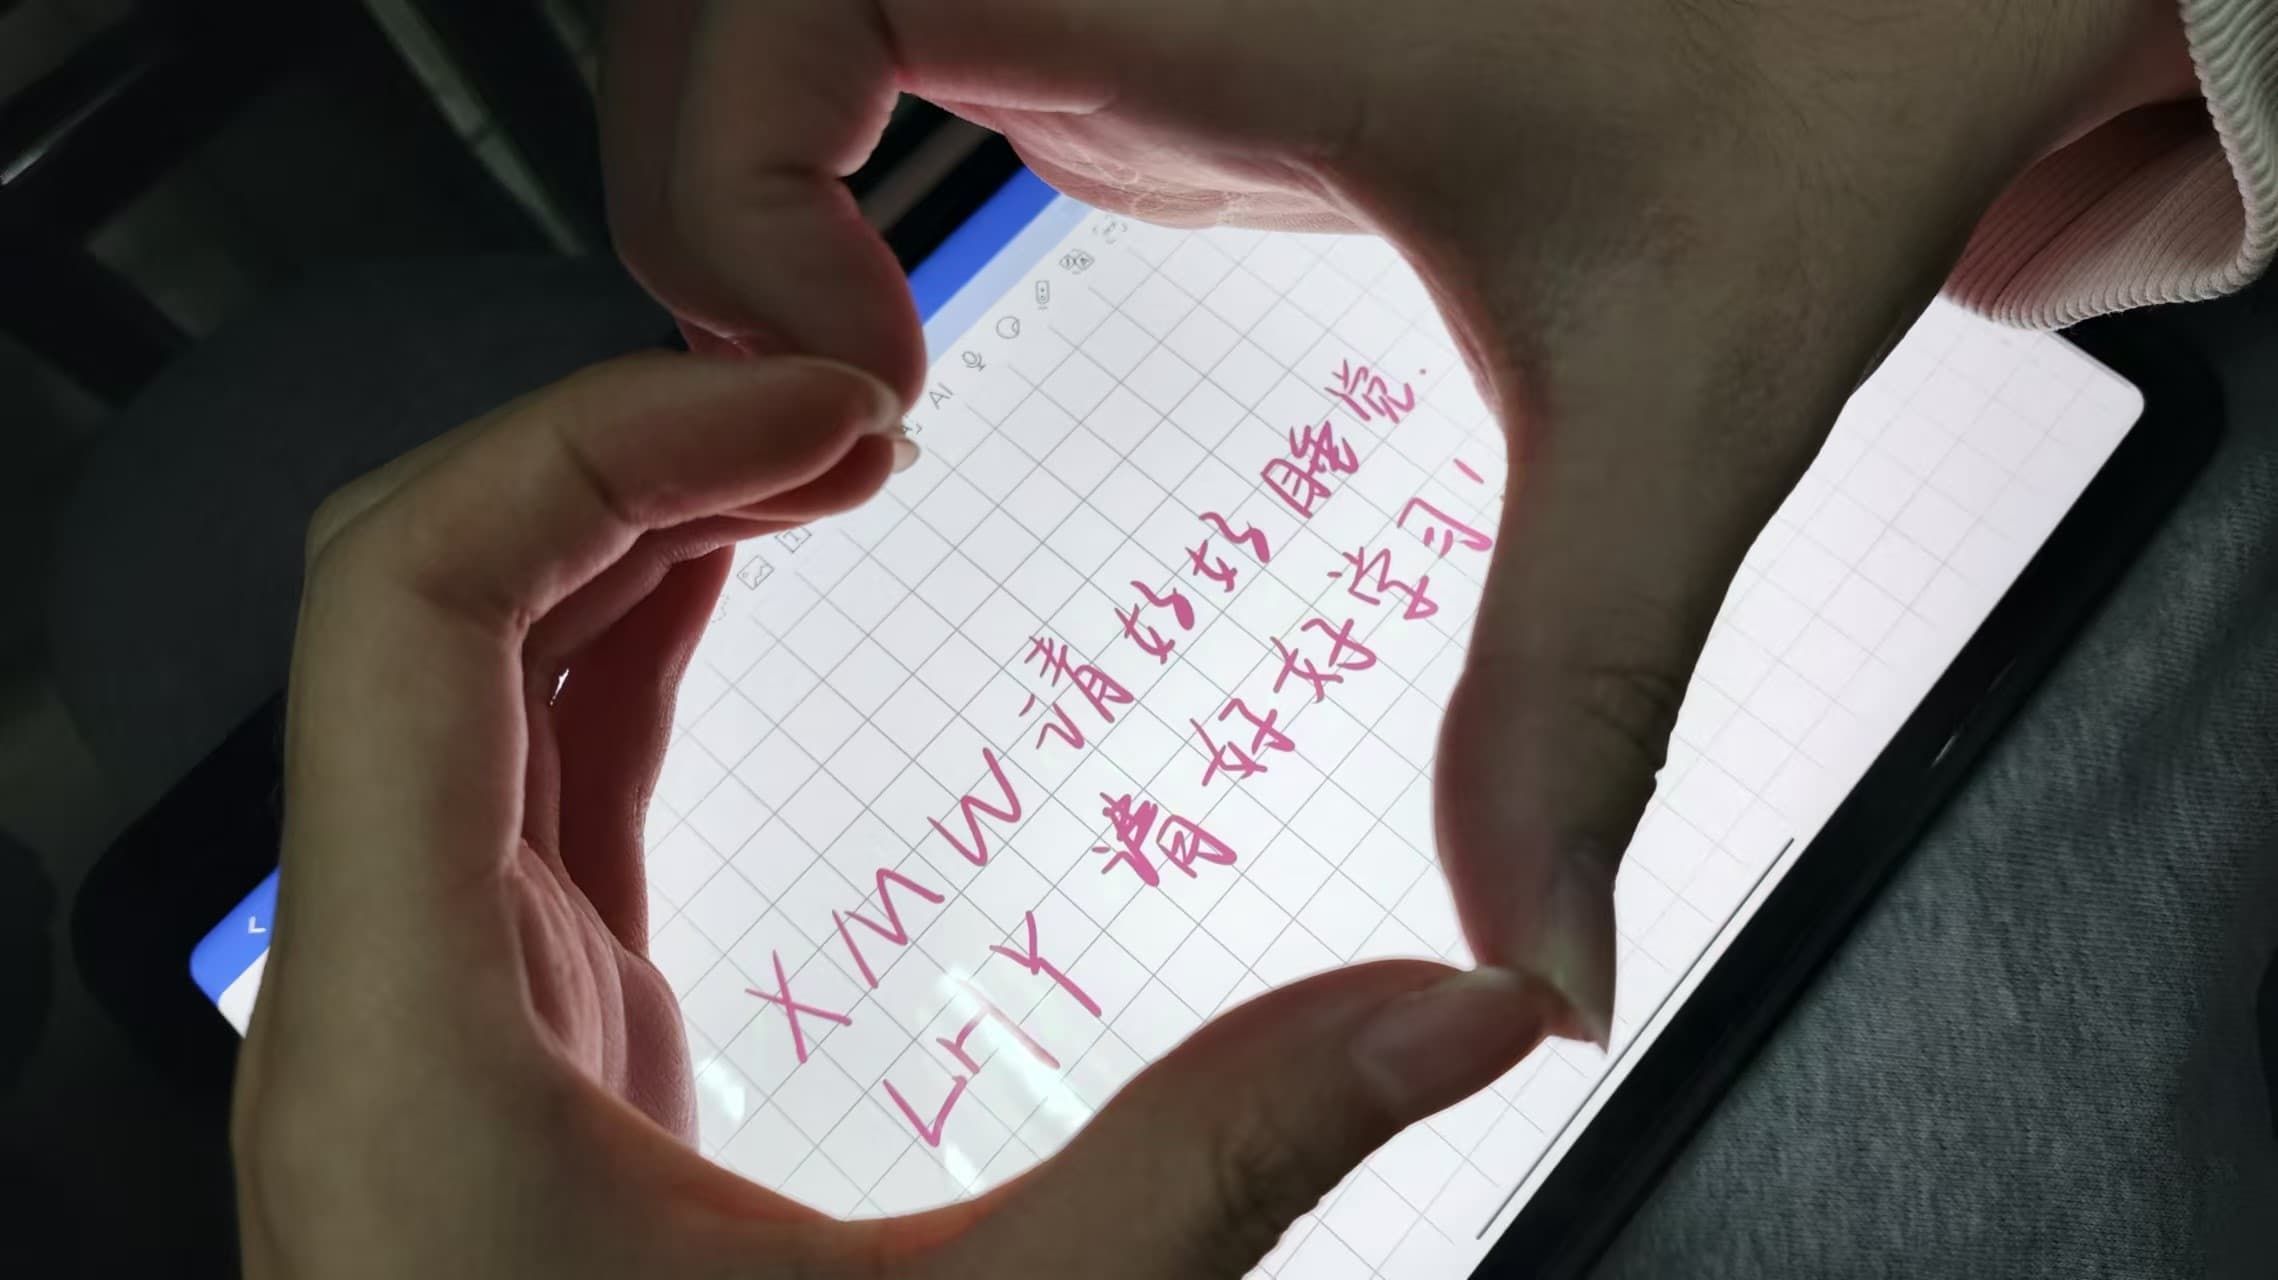 AI
XMW请好好睡觉.
LHY请好好学习!